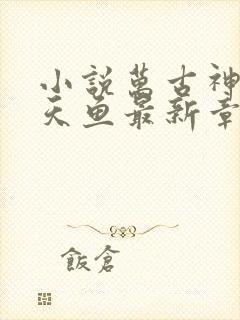 小説萬古神
天魚最新章
飯倉